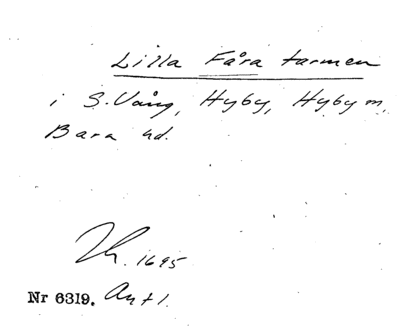 Lilla Fåra tarmen
i S. Vång, Hyby, Hyby m,
Bara hd.
1695
Nr 6319. Ant 1.